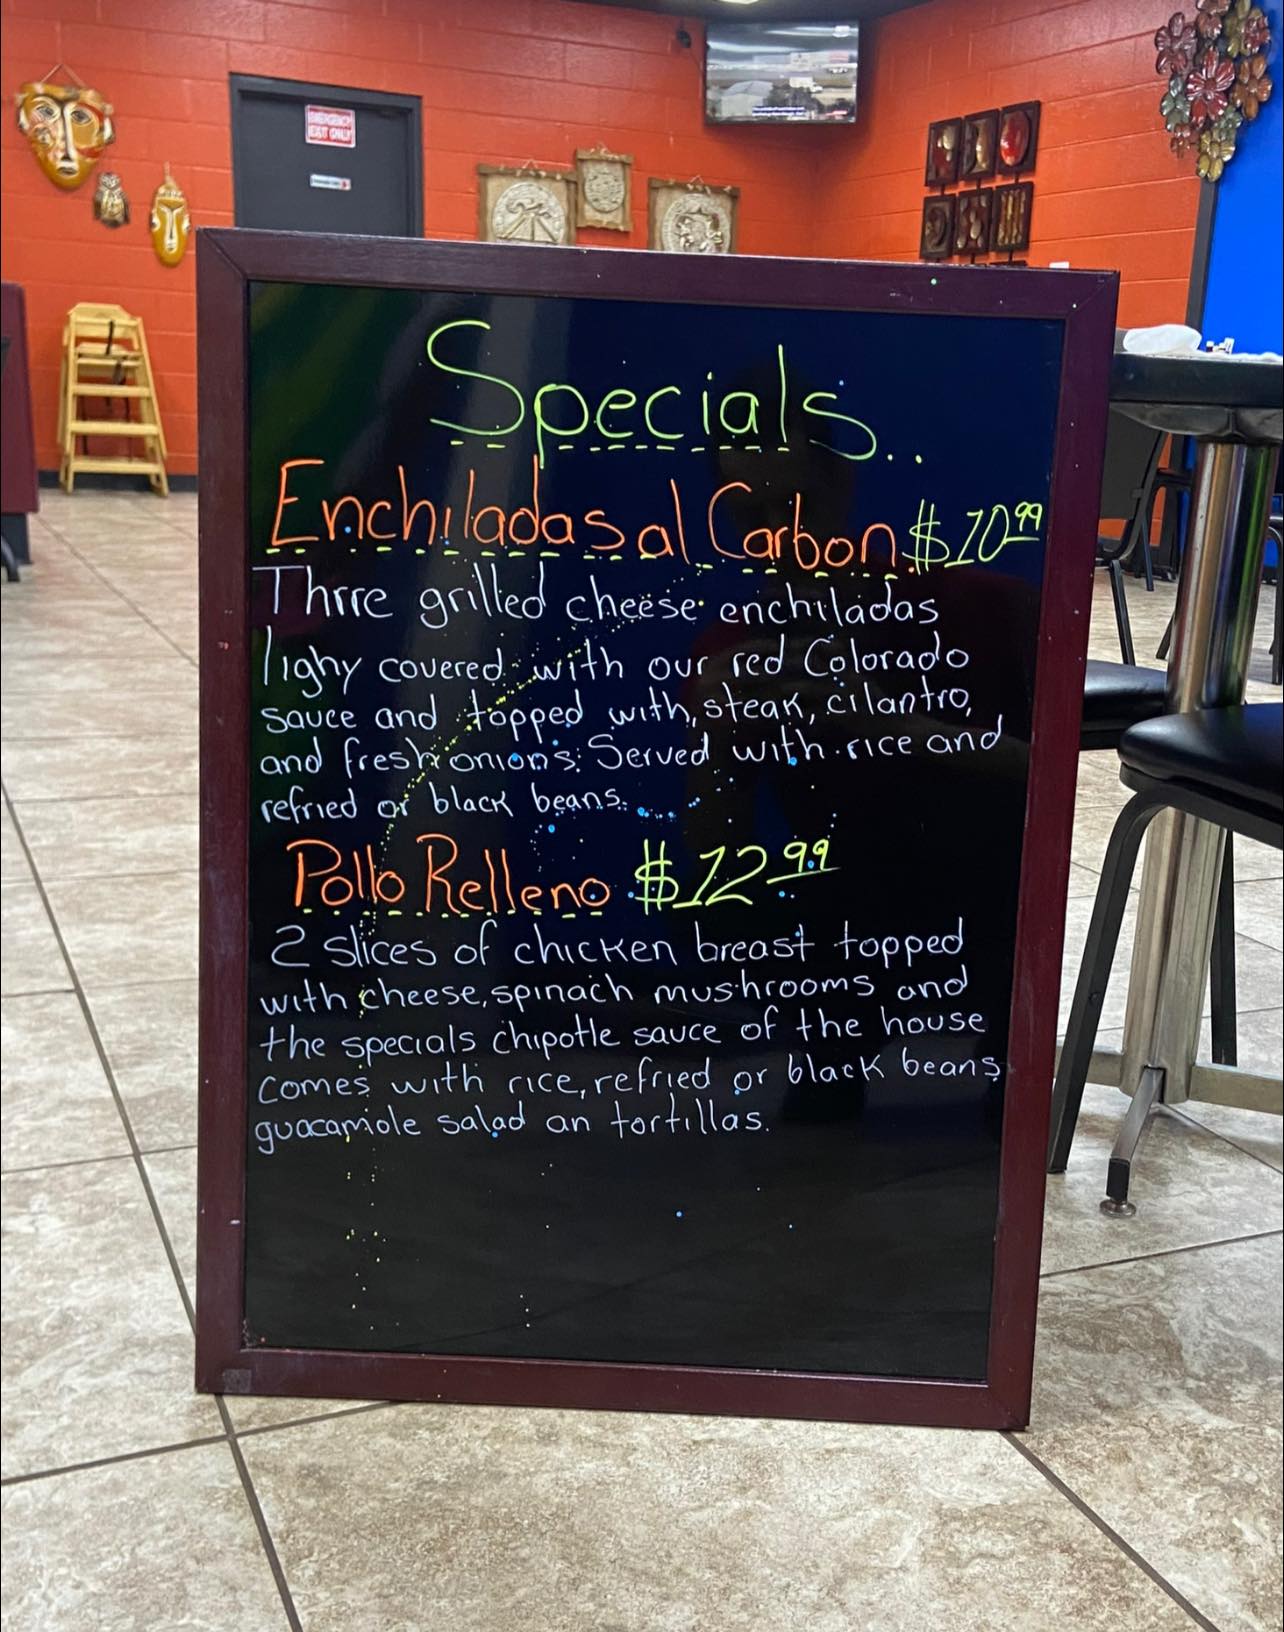 EMERGENCY
EXIT ONLY
Specials..
Enchiladas al Carbon $10.99
Thrre grilled cheese enchiladas
lighy covered with our red Colorado
sauce and topped with, steak, cilantro,
and fresh onions. Served with rice and
refried or black beans.
Pollo Relleno $12.99
2 slices of chicken breast topped
with cheese, spinach mushrooms and
the specials chipotle sauce of the house
comes with rice, refried or black beans
guacamole salad an tortillas.